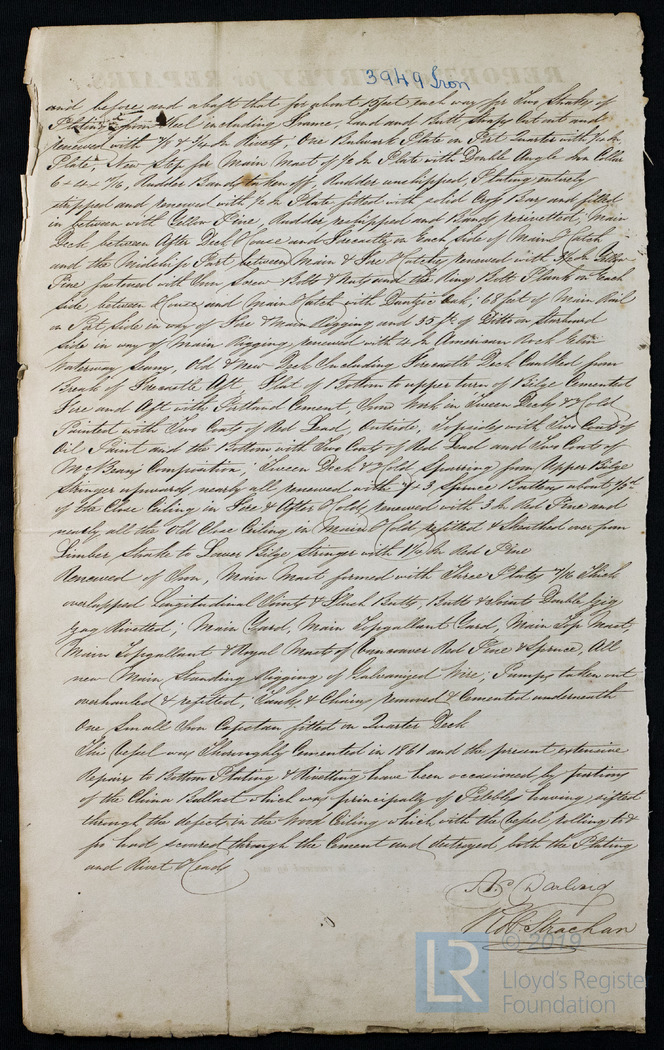 3949 Iron
and before and abaft that for about 13 feet each way for Two Strakes of
Plating from Keel including Frames, Lands and Butt Straps Cut out and
renewed with 7/8 & 3/4 In Rivets, One Bulwark Plate on Port Quarter with In
Plate, New Step for Main Mast of In Plate with Double Angle Iron Collar
6 x 4 x Rudder Bands taken off, Rudder unshipped, Plating entirely
stripped and renewed with In Plate fitted with solid Cross Bars and filled
in between with Yellow Pine, Rudder reshipped and Bands rerivetted; Main
Deck between After Deck House and Forecastle on Each Side of Main Hatch
and the Midships Part between Main & Fore Hatches renewed with 3½ In Yellow
Pine fastened with Iron Screw Bolts & Nuts and the Ring Bolt Plank on Each
Side between House and Main Hatch with Dantzic Oak; 68 feet of Main Rail
on Port Side in way of Fore & Main Rigging and 35 ft of Ditto on Starboard
Side in way of Main Rigging renewed with 4 In American Rock Elm
Waterway Seams, Old & New Deck Including Forecastle Deck Caulked from
Break of Forecastle Aft. Flat of Bottom to upper turn of Bilge Cemented
Fore and Aft with Portland Cement, Iron Work in Tween Decks & Hold
Painted with Two Coats of Red Lead, Outside, Topsides with Two Coats of
Oil Paint and the Bottom with Two Coats of Red Lead and Two Coats of
McBeans Composition; Tween Deck & Hold Sparring from Upper Bilge
Stringer upwards, nearly all renewed with 7 x 3 Spruce Battens about
of the Close Ceiling in Fore & After Holds renewed with 3 In Red Pine and
nearly all the Old Close Ceiling in Main Hold refitted & Sheathed over from
Limber Strake to Lower Bilge Stringer with 1½ In Red Pine
Renewed of Iron, Main Mast formed with Three Plates 7/16 Thick
overlapped Longitudinal Joints & Flush Butts, Butts & Joints Double Zig
zag Rivetted; Main Yard, Main Topgallant Yard, Main Top Mast,
Main Topgallant & Royal Mast of Vancouver Red Pine & Spruce, All
new Main Standing Rigging of Galvanized Wire; Pumps taken out
overhauled & refitted, Tanks & Chains removed & Cemented underneath
One Small Iron Capstan fitted on Quarter Deck
This Vessel was Thoroughly Cemented in 1861 and the present extensive
Repairs to Bottom Plating & Rivetting have been occasioned by portions
of the China Ballast which was principally of Pebbles having sifted
through the defects in the Wood Ceiling which with the Vessel rolling to &
fro had scoured through the Cement and destroyed both the Plating
and Rivet Heads
Darling
Strachan
© 2019
LR
Lloyd's Register
Foundation